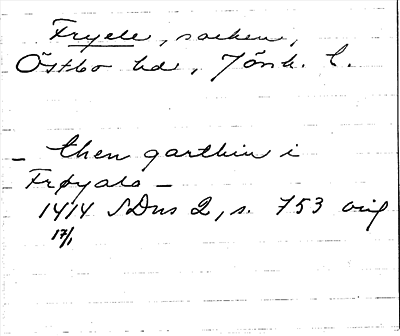 Fryele, socken,
Östbo hd, Jönk. l.
– then garthin i
Frøyalo –
1414 SDns 2, s. 753 orig
17/1